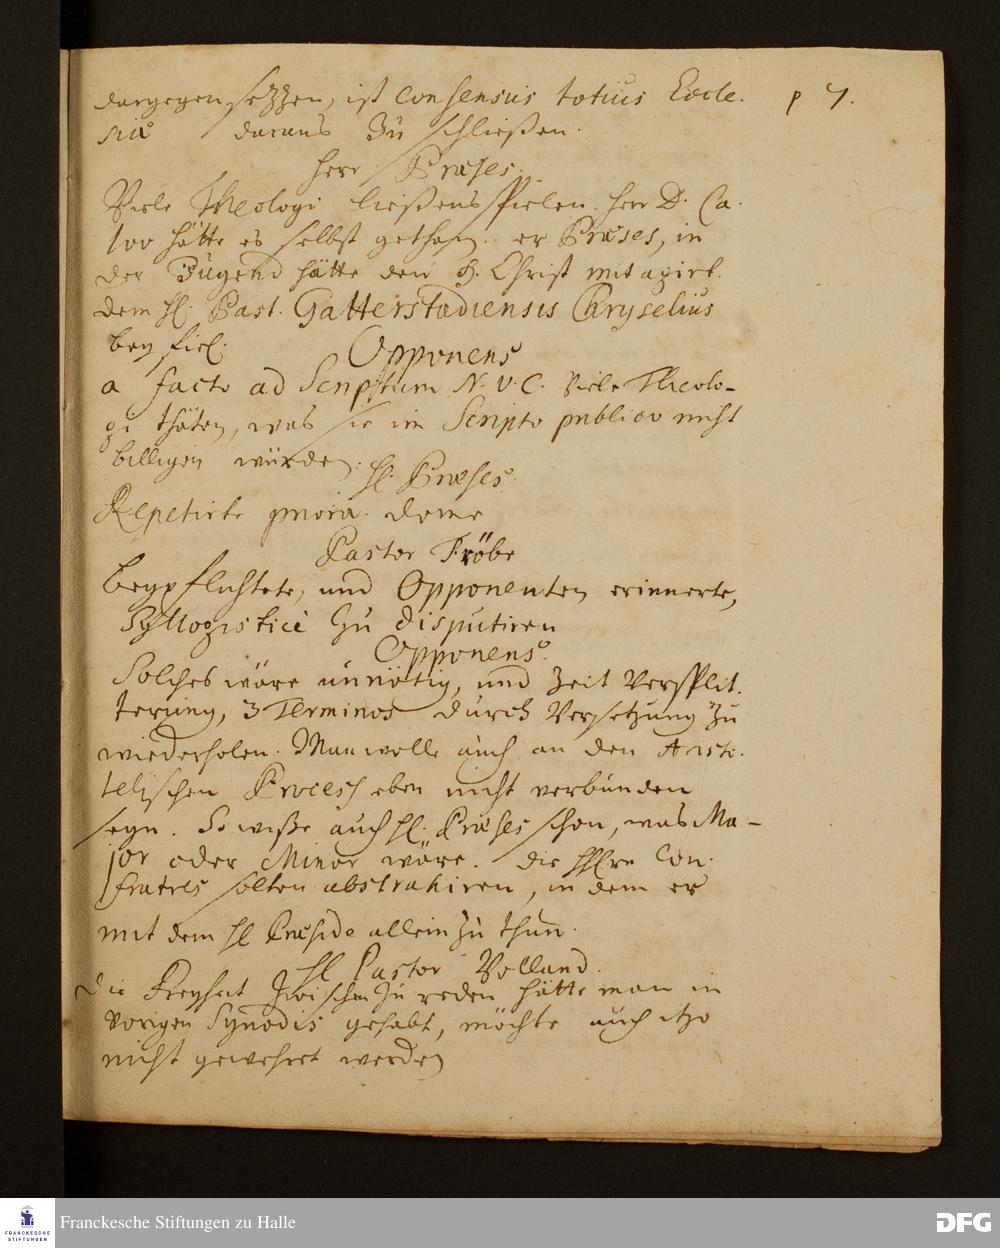 dargegen setzzen, ist Consensus totius Eccle. p 7.
siæ daraus zu schließen.
Herr Præses.
Viele Theologi ließens spielen. Herr D. Ca.
lov hätte es selbst gethan. er Præses, in
der Jugend hätte den H. Christ mit agirt.
dem Hl. Past. Gatterstadiensis Chryselius
bey fiel.
Opponens
a facto ad Scriptum N. V. C. Viele Theolo-
gi thäten, was sie in Scripto publico nicht
billigen würden.
Hl. Præses.
Repetirte priora. deme
Pastor Fröbe
beypflichtete, und Opponenten erinnerte,
Syllogisticè zu disputiren
Opponens.
Solches wäre unnötig, und Zeit Versplit.
terung, 3 Terminos durch Versetzung zu
wiederholen. Man wolle auch an den Aristo.
telischen Process eben nicht verbunden
seyn. So wiße auch Hl. Præses schon, was Ma-
jor oder Minor wäre. die HHlrn Con.
fratres solten abstrahiren, in dem er
mit dem Hl Præside allein zu thun.
Hl Pastor Volland.
Die Freyheit Zwischen zu reden hätte man in
vorigen Synodis gehabt, möchte auch itzo
nicht gewehret werden
FRANCKESCHE STIFTUNGEN
Franckesche Stiftungen zu Halle
DFG